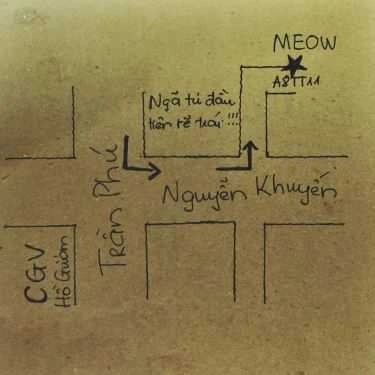 MEOW
A8TT11
Ngã tư đầu
tiên rẽ trái!!!
Nguyễn Khuyến
Trần Phú
CGV
Hồ Gươm